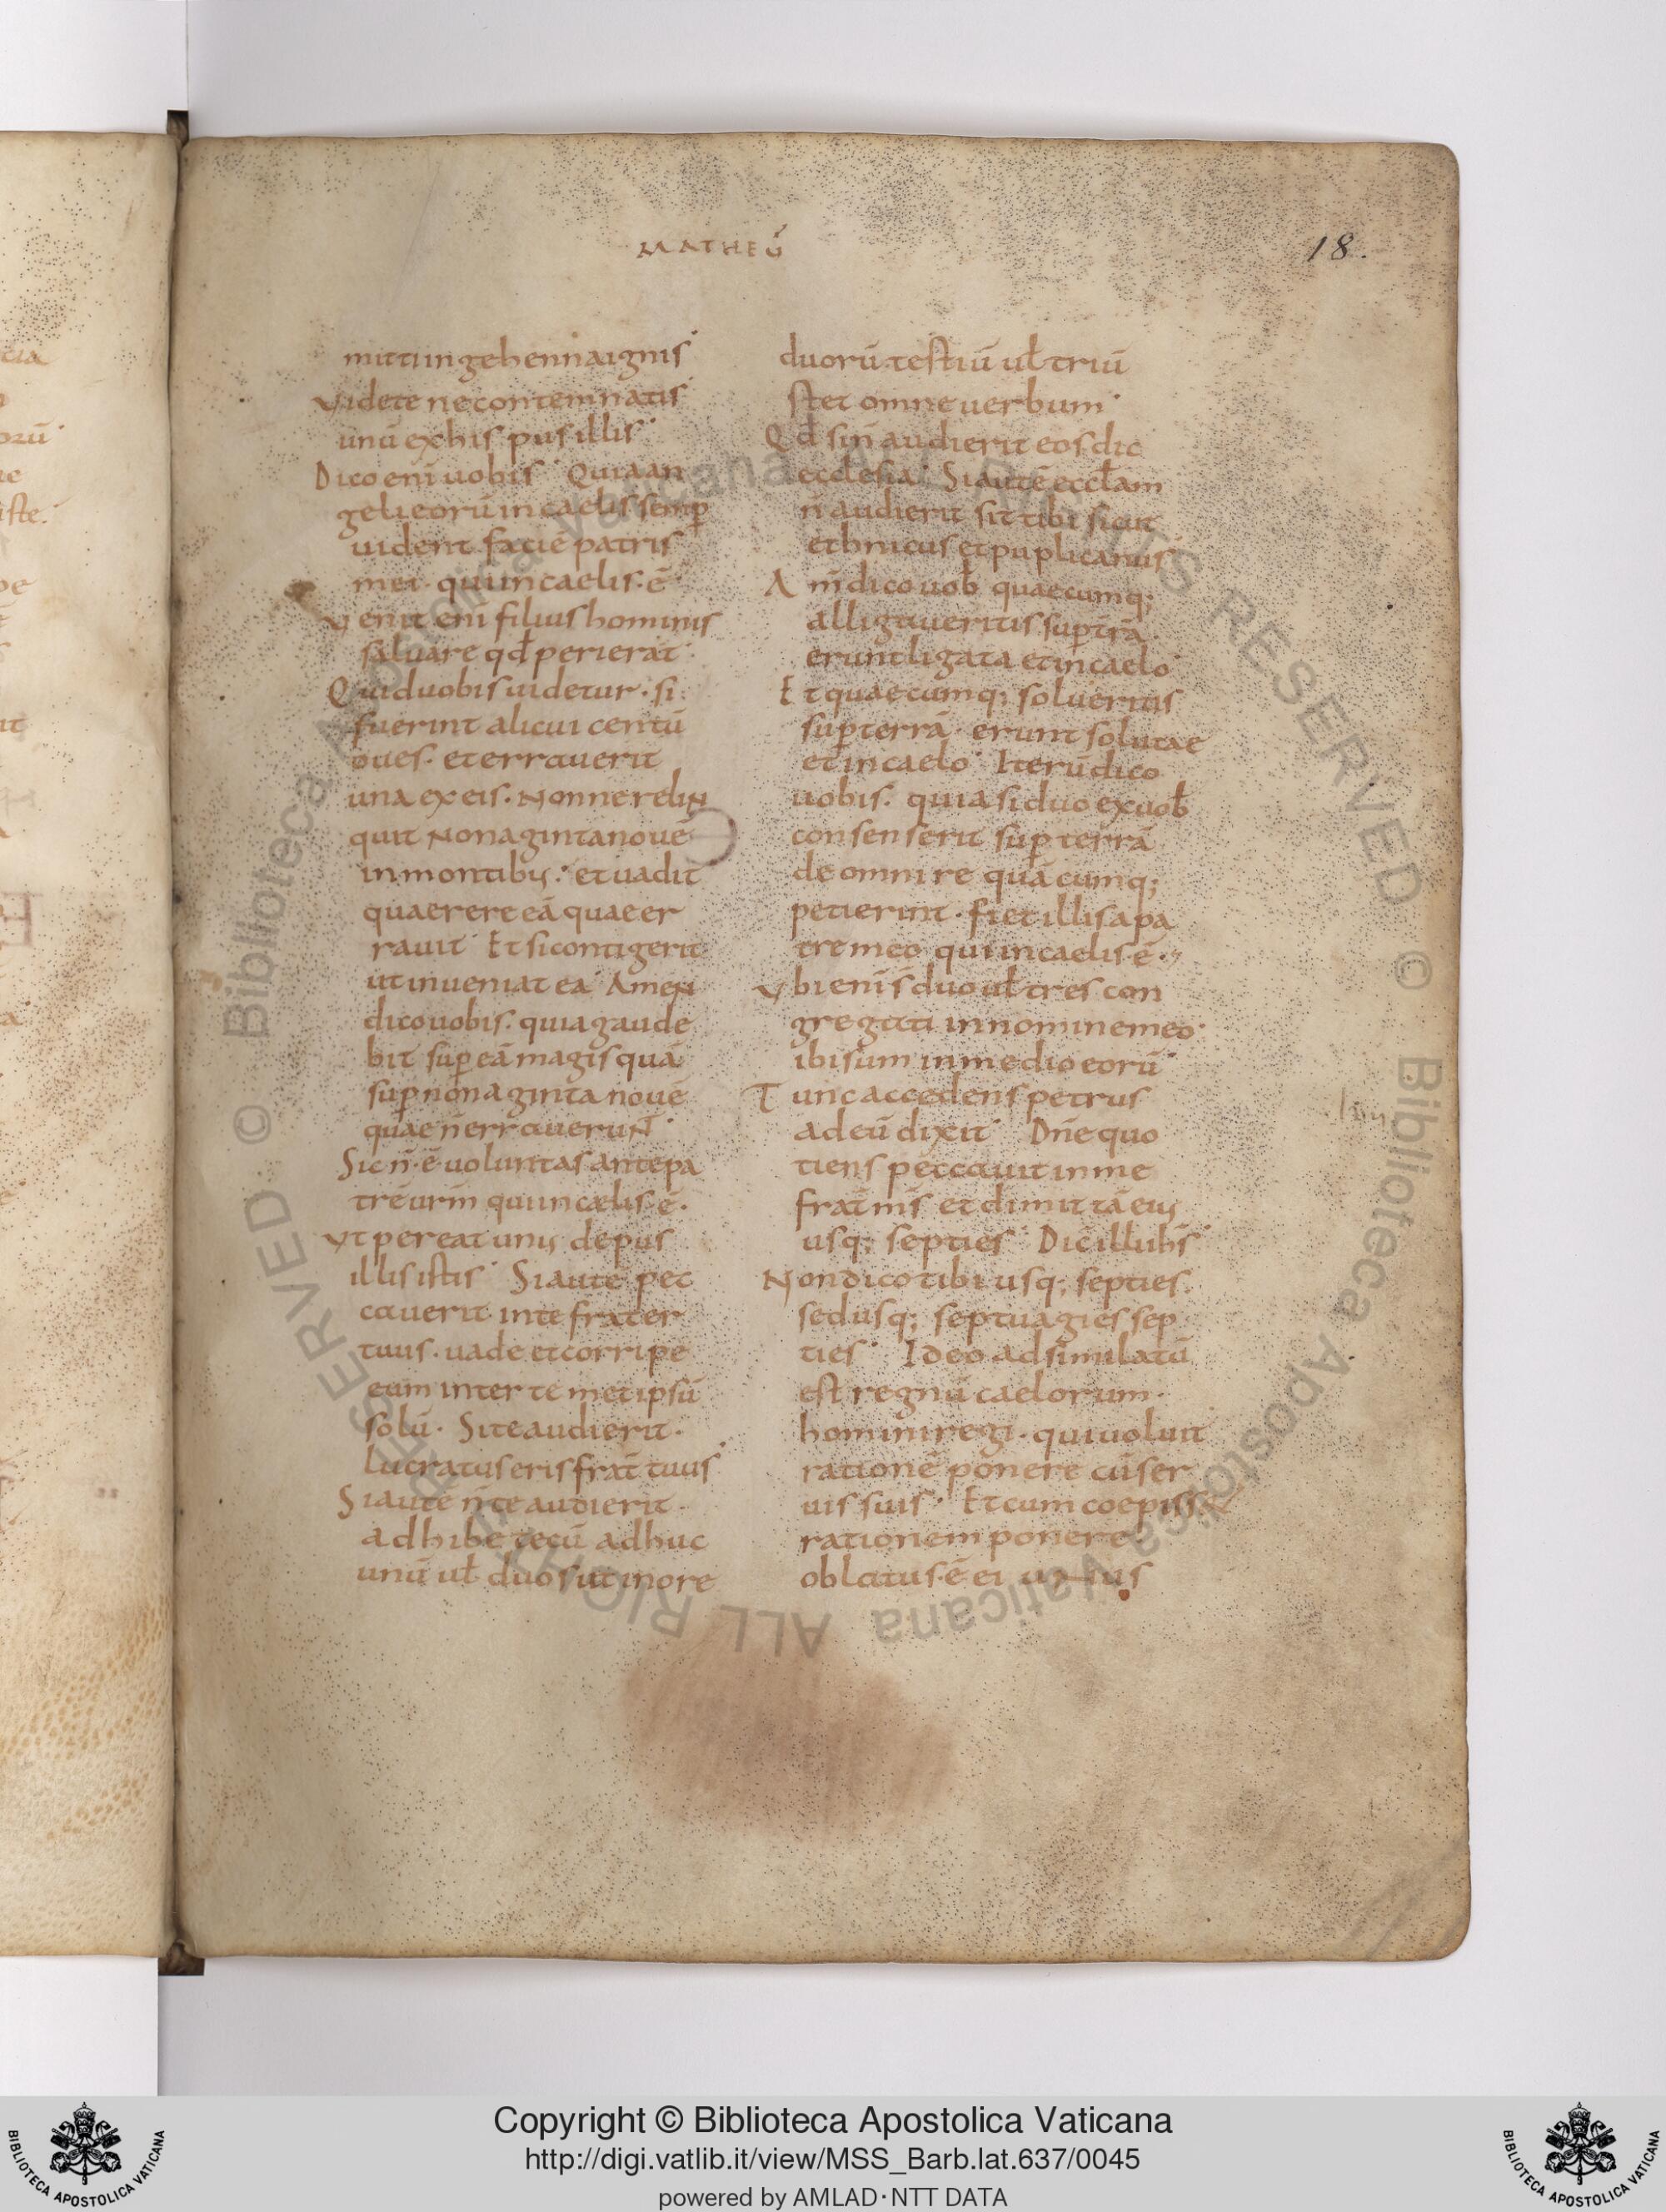 MATHEŪ
18.
mitti in gehenna ignis
Videte ne contemnatis
unū ex his pusillis
Dico enī uobis Quia an
geli eorū in caelis semp̄
uident faciē patris
mei. qui in caelis. ē
Venit enī filius hominis
saluare qđ perierat
Quid uobis uidetur. si
fuerint alicui centū
oues. et errauerit
una ex eis. Nonne relin
quit Nonaginta nouē
in montibꝰ. et uadit
quaerere eā quae er
rauit Et si contigerit
ut inueniat eā Amen
dico uobis. quia gaude
bit sup̄ eā magis quā
sup̄ nonaginta nouē
quae n̄ errauerunt
Sic n̄. ē uoluntas ante pa
trē urm̄ qui in caelis. ē.
Vt pereat unꝰ de pus
illis istis Si autē pec
cauerit in te frater
tuus. uade et corripe
eum inter te met ipsū
solū. Si te audierit.
lucratus eris frat̄ tuus
Si autē n̄ te audierit.
adhibe tecū adhuc
unū uł duos ut in ore
duorū testiū uł triū
stet omne uerbum
Qđ si n̄ audierit eos dic
ecclesia. Si autē eccłam
n̄ audierit sit tibi sicut
ethnicus et puplicanus
Am̄ dico uob̄ quaecumq;
alligaueritis sup̄ trā.
erunt ligata et in caelo
Et quaecumq; solueritis
sup̄ terrā. erunt solutae
et in caelo Iterū dico
uobis. quia si duo ex uob̄
consenserit sup̄ terrā
de omni re quācumq;
petierint. fiet illis a pa
tre meo qui in caelis. ē.
Vbi enī s̄ duo uł tres con
gregati in nomine meo.
ibi sum in medio eorū
Tunc accedens petrus
ad eū dixit Dn̄e quo
tiens peccauit in me
frat̄ m̄s et dimittā eiꝰ
usq; septies Dic̄ illi ih̄s
Non dico tibi usq; septies
sed usq; septuagies sep
ties Ideo adsimilatū
est regnū caelorum.
homini regi. qui uoluit
rationē ponere cū ser
uis suis. Et cum coepisset
rationem ponere
oblatus. ē ei unus
Copyright © Biblioteca Apostolica Vaticana
http://digi.vatlib.it/view/MSS_Barb.lat.637/0045
powered by AMLAD·NTT DATA
BIBLIOTECA APOSTOLICA VATICANA
BIBLIOTECA APOSTOLICA VATICANA
© Biblioteca Apostolica Vaticana ALL RIGHTS RESERVED
© Biblioteca Apostolica Vaticana ALL RIGHTS RESERVED